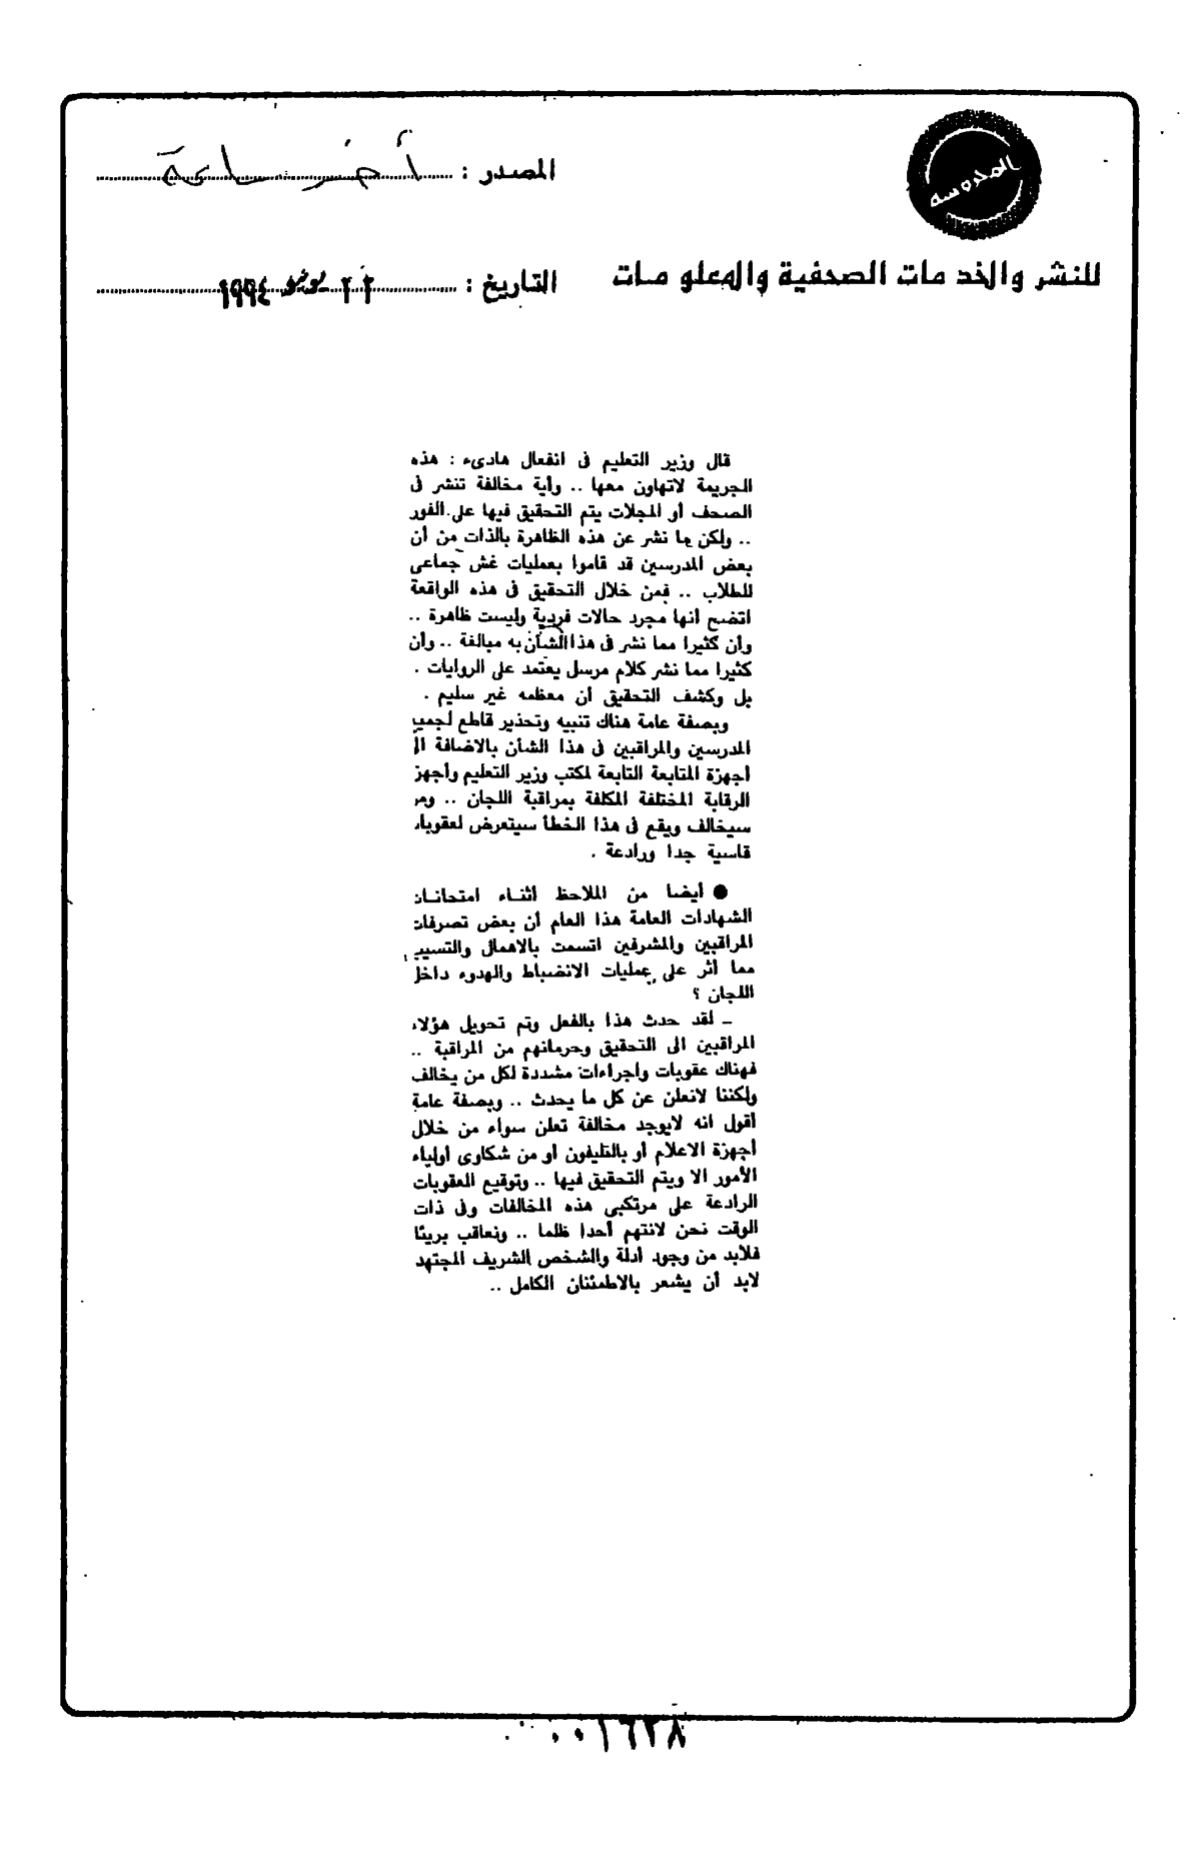 المحروسة
المصدر : أخر ساعة
للنشر والخدمات الصحفية والمعلومات
التاريخ : ٢٢ يونيو ١٩٩٤
قال وزير التعليم فى انفعال هادىء : هذه
الجريمة لاتهاون معها .. وأية مخالفة تنشر فى
الصحف أو المجلات يتم التحقيق فيها على الفور
.. ولكن ما نشر عن هذه الظاهرة بالذات من أن
بعض المدرسين قد قاموا بعمليات غش جماعى
للطلاب .. فمن خلال التحقيق فى هذه الواقعة
اتضح أنها مجرد حالات فردية وليست ظاهرة ..
وأن كثيرا مما نشر فى هذا الشأن به مبالغة .. وأن
كثيرا مما نشر كلام مرسل يعتمد على الروايات .
بل وكشف التحقيق أن معظمه غير سليم .
وبصفة عامة هناك تنبيه وتحذير قاطع لجميع
المدرسين والمراقبين فى هذا الشأن بالاضافة الى
أجهزة المتابعة التابعة لمكتب وزير التعليم وأجهز
الرقابة المختلفة المكلفة بمراقبة اللجان .. ومن
سيخالف ويقع فى هذا الخطأ سيتعرض لعقوبات
قاسية جدا ورادعة .
● أيضا من الملاحظ أثناء امتحانات
الشهادات العامة هذا العام أن بعض تصرفات
المراقبين والمشرفين اتسمت بالاهمال والتسيب
مما أثر على عمليات الانضباط والهدوء داخل
اللجان ؟
ـ لقد حدث هذا بالفعل وتم تحويل هؤلاء
المراقبين الى التحقيق وحرمانهم من المراقبة ..
فهناك عقوبات واجراءات مشددة لكل من يخالف
ولكننا لانعلن عن كل ما يحدث .. وبصفة عامة
أقول انه لايوجد مخالفة تعلن سواء من خلال
أجهزة الاعلام أو بالتليفون أو من شكاوى أولياء
الأمور الا ويتم التحقيق فيها .. وتوقيع العقوبات
الرادعة على مرتكبى هذه المخالفات وفى ذات
الوقت نحن لانتهم أحدا ظلما .. ونعاقب بريئا
فلابد من وجود أدلة والشخص الشريف المجتهد
لابد أن يشعر بالاطمئنان الكامل ..
٠٠١٦٢٨